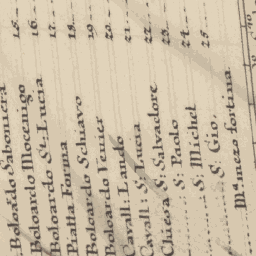 Boloardo Sabonera 15.
Boloardo Mocenigo 16.
Boloardo S: Lucia 17.
Piatta Forma 18.
Boloardo Schiavo 19
Boloardo Venier 20.
Cavall: Lando 21.
Cavall: S. Lucia 22.
Chiesa S: Salvadore 23.
S: Paolo 24
S: Michel 25
S: Gio.
mezo fortina